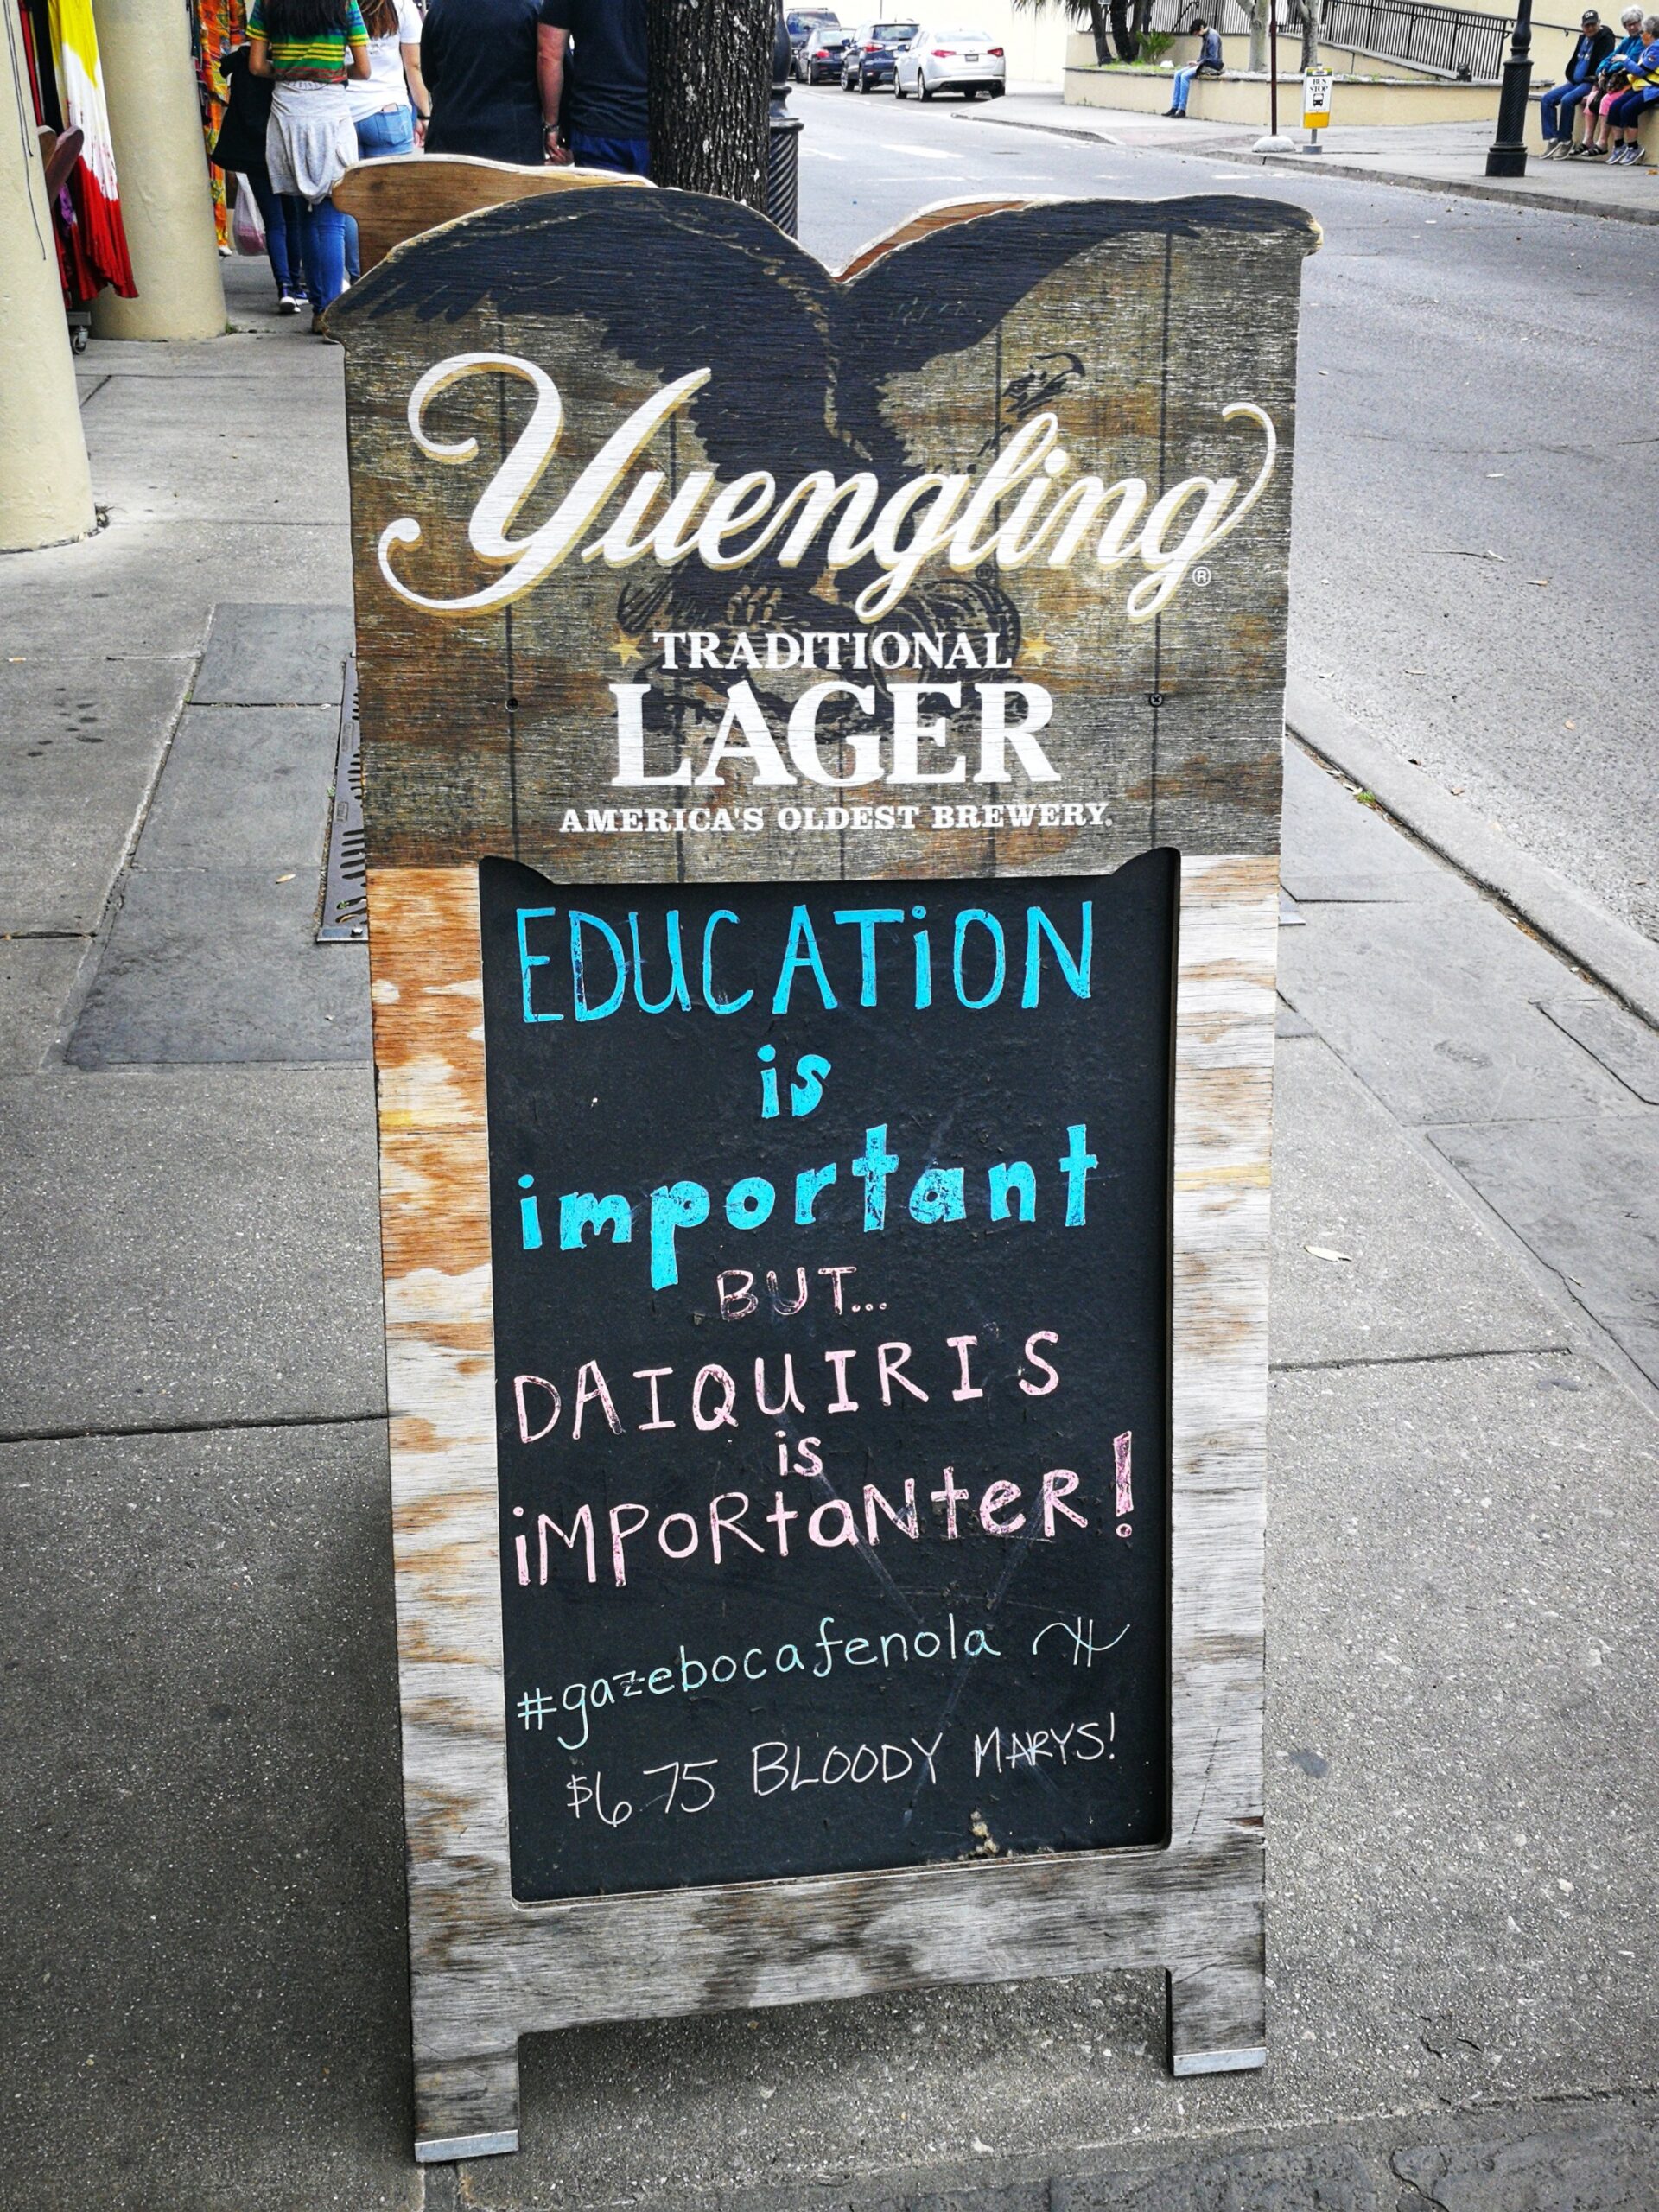 Yuengling®
TRADITIONAL
LAGER
AMERICA'S OLDEST BREWERY.
EDUCATiON
is
important
BUT...
DAIQUIRIS
is
iMPoRtaNteR!
#gazebocafenola
$6.75 BLOODY MARYS!
BUS
STOP